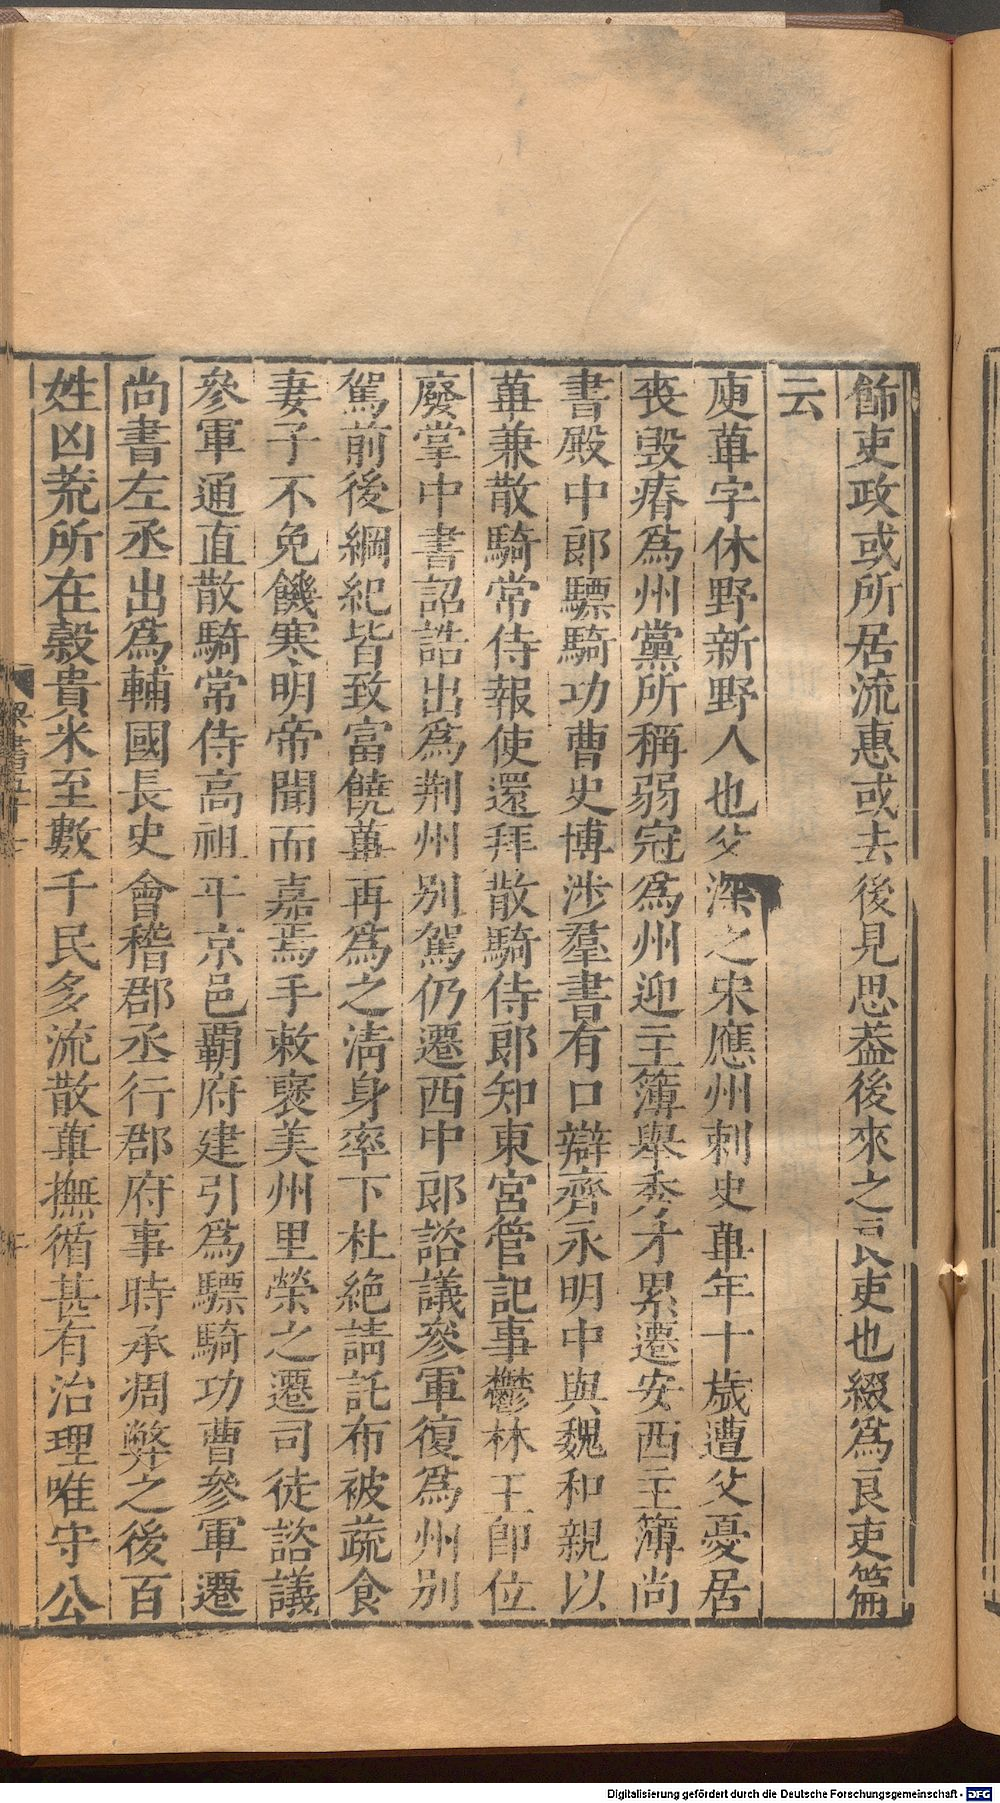 飾吏政或所居流惠或去後見思葢後來之良吏也綴爲良吏篇
云
庾蓽字休野新野人也父深之宋應州刺史蓽年十歲遭父憂居
丧毀瘠爲州黨所稱弱冠爲州迎主簿舉秀才累遷安西主簿尚
書殿中郎驃騎功曹史博涉羣書有口辯齊永明中與魏和親以
蓽兼散騎常侍報使還拜散騎侍郎知東宮管記事鬱林王卽位
廢掌中書詔誥出爲荆州別駕仍遷西中郎諮議參軍復爲州別
駕前後綱紀皆致富饒蓽再爲之清身率下杜絕請託布被蔬食
妻子不免饑寒明帝聞而嘉焉手敕褒美州里榮之遷司徒諮議
參軍通直散騎常侍高祖平京邑霸府建引爲驃騎功曹參軍遷
尚書左丞出爲輔國長史會稽郡丞行郡府事時承凋弊之後百
姓凶荒所在穀貴米至數千民多流散蓽撫循甚有治理唯守公
梁書五十
Digitalisierung gefördert durch die Deutsche Forschungsgemeinschaft - DFG